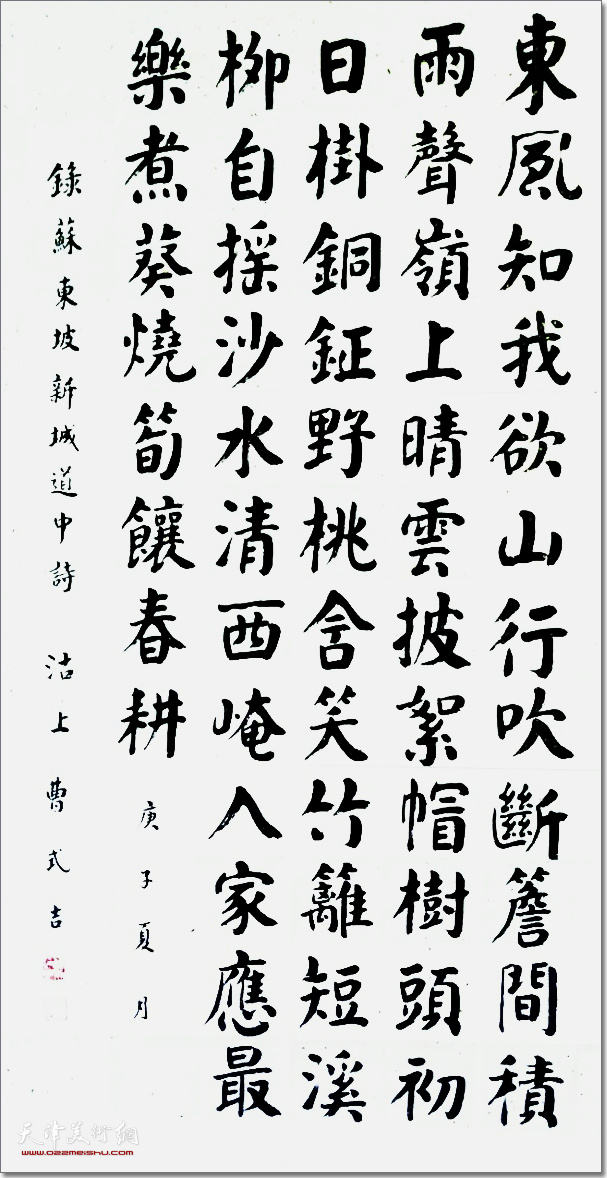 東風知我欲山行吹斷簷間積
雨聲嶺上晴雲披絮帽樹頭初
日掛銅鉦野桃含笑竹籬短溪
柳自搖沙水清西崦人家應最
樂煮葵燒筍饟春耕
庚子夏月
錄蘇東坡新城道中詩 沽上 曹式吉
天津美術網
www.022meishu.com